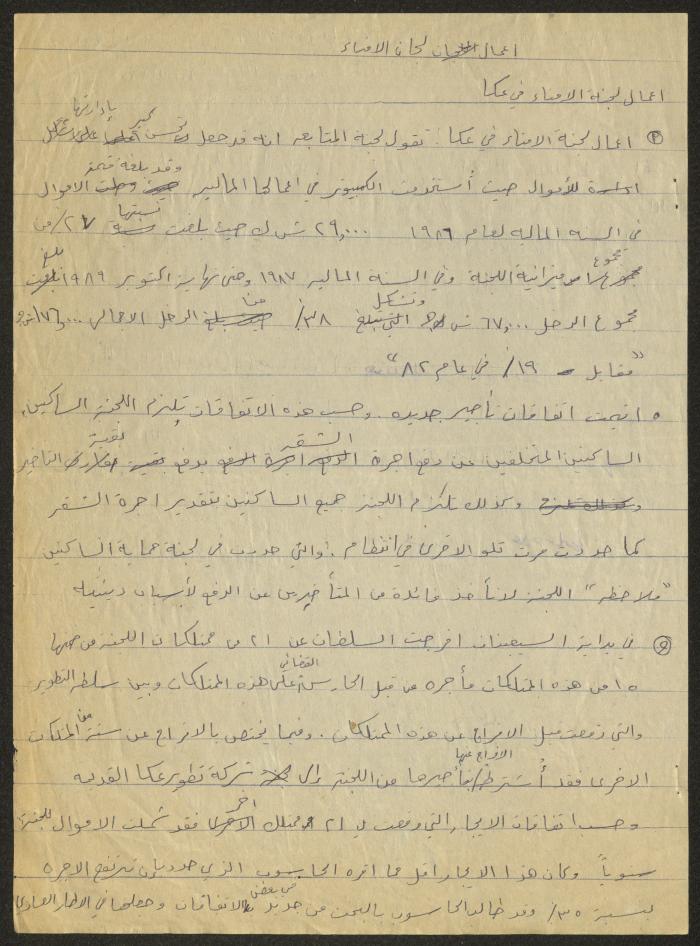 اعمال لجان الامناء
اعمال لجنة الامناء في عكا
② اعمال لجنة الامناء في عكا: تقول لجنة المتابعه انه قد حصل تحسن كبير بإدارتها
للأموال حيث أستخدمت الكمبيوتر في اعمالها الماليه وقد بلغة قيمة الاموال
في السنه الماليه لعام ١٩٨٦ ٢٩,٠٠٠ ش.ج حيث بلغت نسبتها ٢٧٪ من
مجموع ميزانية اللجنة وفي السنه الماليه ١٩٨٧ وحتى نهاية اكتوبر ١٩٨٩ بلغ
مجموع الدخل ٦٧,٠٠٠ ش.ج وتشكل ٣٨٪ من الدخل الاجمالي ١٧٦,٠٠٠ ش.ج
"مقابل ١٩٪ في عام ٨٢"
٥ اقيمت اتفاقات تأجير جديده. وحسب هذه الاتفاقات تلتزم اللجنة الساكنين,
الساكنين المتخلفين عن دفع اجرة الشقه بدفع التأخير
وكذلك تلتزم اللجنة جميع الساكنين بتقدير اجرة الشقر
كما حددت مرت تلو الاخرى في انتظام. والتي حددت في لجنة حماية الساكنين
"ملاحظه" اللجنة لا تأخذ فائدة من المتأخرين عن الدفع لأسباب دينيه
⑥ في بداية السبعينات افرجت السلطات عن ٢١ من ممتلكات اللجنة من ضمنها
١٥ من هذه الممتلكات مأجره من قبل الحارس القضائي على هذه الممتلكات وبين سلطة التطوير
والتي وقعت قبل الافراج عن هذه الممتلكات. وفيما يختص بالافراج عن ستة من الممتلكات
الاخرى فقد أُشترط الافراج عنها بتأجيرها من اللجنة إلى شركة تطوير عكا القديمه
وحسب اتفاقات الايجار التي وقعت ل ٢١ ممتلك اخر فقد شملت الاموال للجنة
سنوياً وكان هذا الايجار اقل مما اقره الحاسوب الذي حدد بأن ترتفع الاجره
بنسبة ٣٥٪ وقد طالب الحاسوب بالبحث من جديد في بعض الاتفاقات وجعلها في الاطار العادي